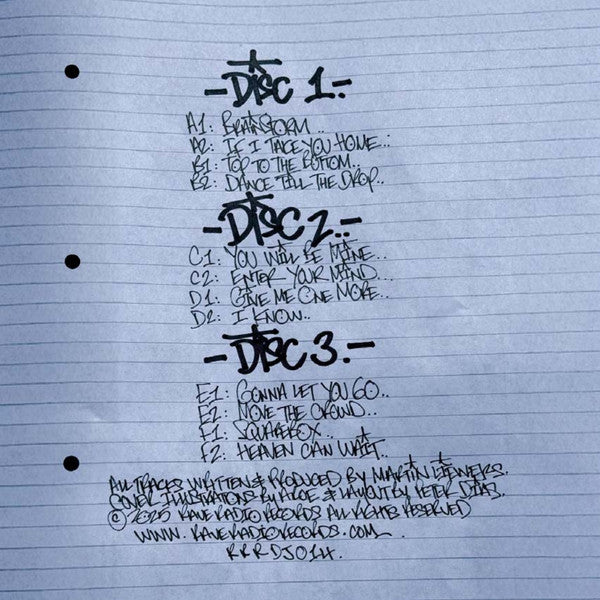 -DISC 1.-
A1: BRAINSTORM..
A2: IF I TAKE YOU HOME..
B1: TOP TO THE BOTTOM..
B2: DANCE TILL THE DROP..
-DISC 2..-
C1: YOU WILL BE MINE...
C2: ENTER YOUR MIND...
D1: GIVE ME ONE MORE...
D2: I KNOW..
-DISC 3.-
E1: GONNA LET YOU GO..
E2: MOVE THE CROWD..
F1: SQUAREBOX...
F2: HEAVEN CAN WAIT..
ALL TRACKS WRITTEN & PRODUCED BY MARTIN LIDNERS.
COVER ILLUSTRATIONS BY & LAYOUT BY PETER
© 2025 RAVE RADIO RECORDS ALL RIGHTS RESERVED
WWW.RAVERADIORECORDS.COM
RRRDJ014.